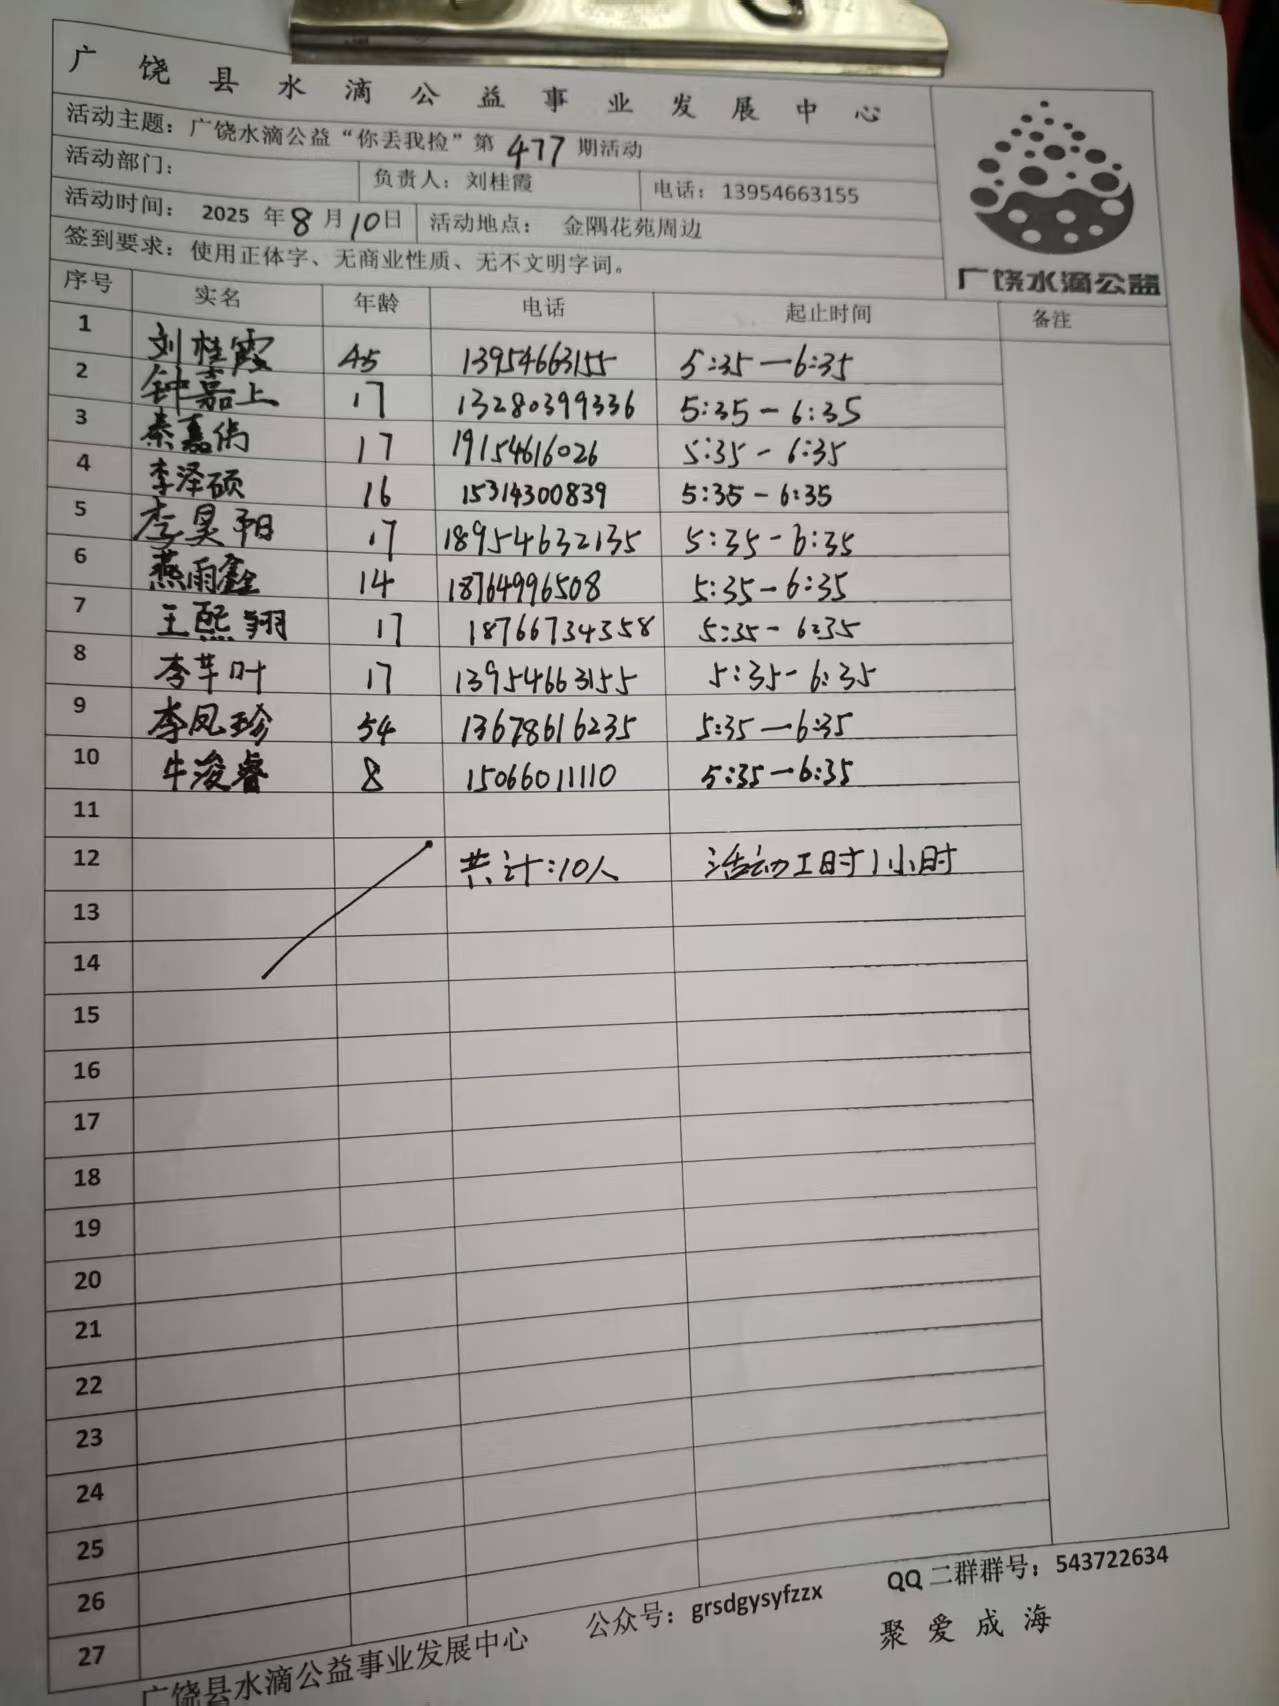 广饶县水滴公益事业发展中心
活动主题：广饶水滴公益“你丢我捡”第477期活动
活动部门： 负责人：刘桂霞 电话：13954663155
活动时间： 2025年8月10日 活动地点： 金隅花苑周边
签到要求：使用正体字、无商业性质、无不文明字词。
广饶水滴公益
序号 实名 年龄 电话 起止时间 备注
1 刘桂霞 45 13954663155 5:35—6:35
2 钟嘉上 17 13280399336 5:35-6:35
3 秦嘉伟 17 19154616026 5:35-6:35
4 李泽硕 16 15314300839 5:35-6:35
5 李昊阳 17 18954632135 5:35-6:35
6 燕雨鑫 14 18764996508 5:35-6:35
7 王熙翔 17 18766734358 5:35-6:35
8 李芊叶 17 13954663155 5:35-6:35
9 李凤珍 54 13678616235 5:35—6:35
10 牛浚睿 8 15066011110 5:35—6:35
11
12 共计:10人 活动工时1小时
13
14
15
16
17
18
19
20
21
22
23
24
25
26
27
广饶县水滴公益事业发展中心 公众号：grsdgysyfzzx QQ二群群号：543722634
聚爱成海